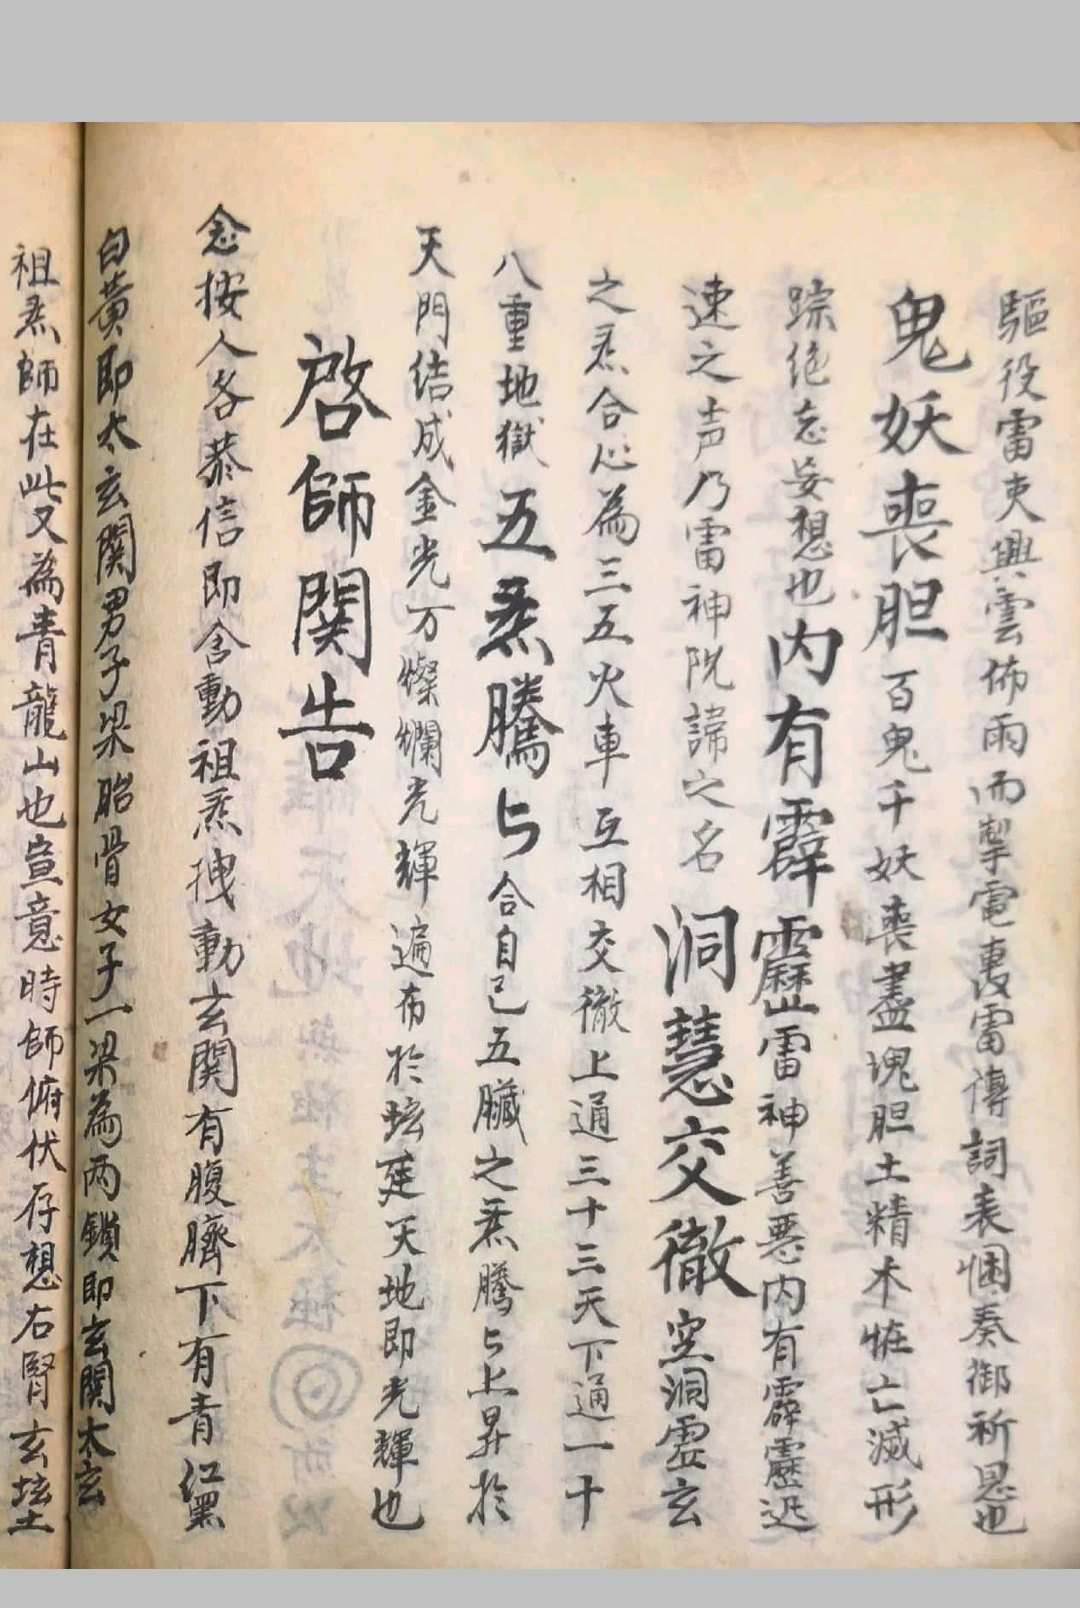 驅役雷吏興雲佈雨而掣電轟雷傳詞表悃奏御祈恩也
鬼妖喪胆百鬼千妖喪盡塊胆土精木恠亡滅形
踪绝忘妄想也内有霹靂雷神善惡内有霹靂迅
速之声乃雷神阮諱之名洞慧交徹空洞虛玄
之炁合心為三五火車互相交徹上通三十三天下通一十
八重地獄五炁騰与合自己五臟之炁騰与上昇於
天門结成金光万燦爛光輝遍布於坛莛天地即光輝也
啓師関告
念按人各恭信即含動祖炁拽動玄関有腹臍下有青红黑
白黄即太玄関男子梁胎骨女子一梁為两鎖即玄関太玄
祖炁師在此又為青龍山也宣意時師俯伏存想右腎玄坛